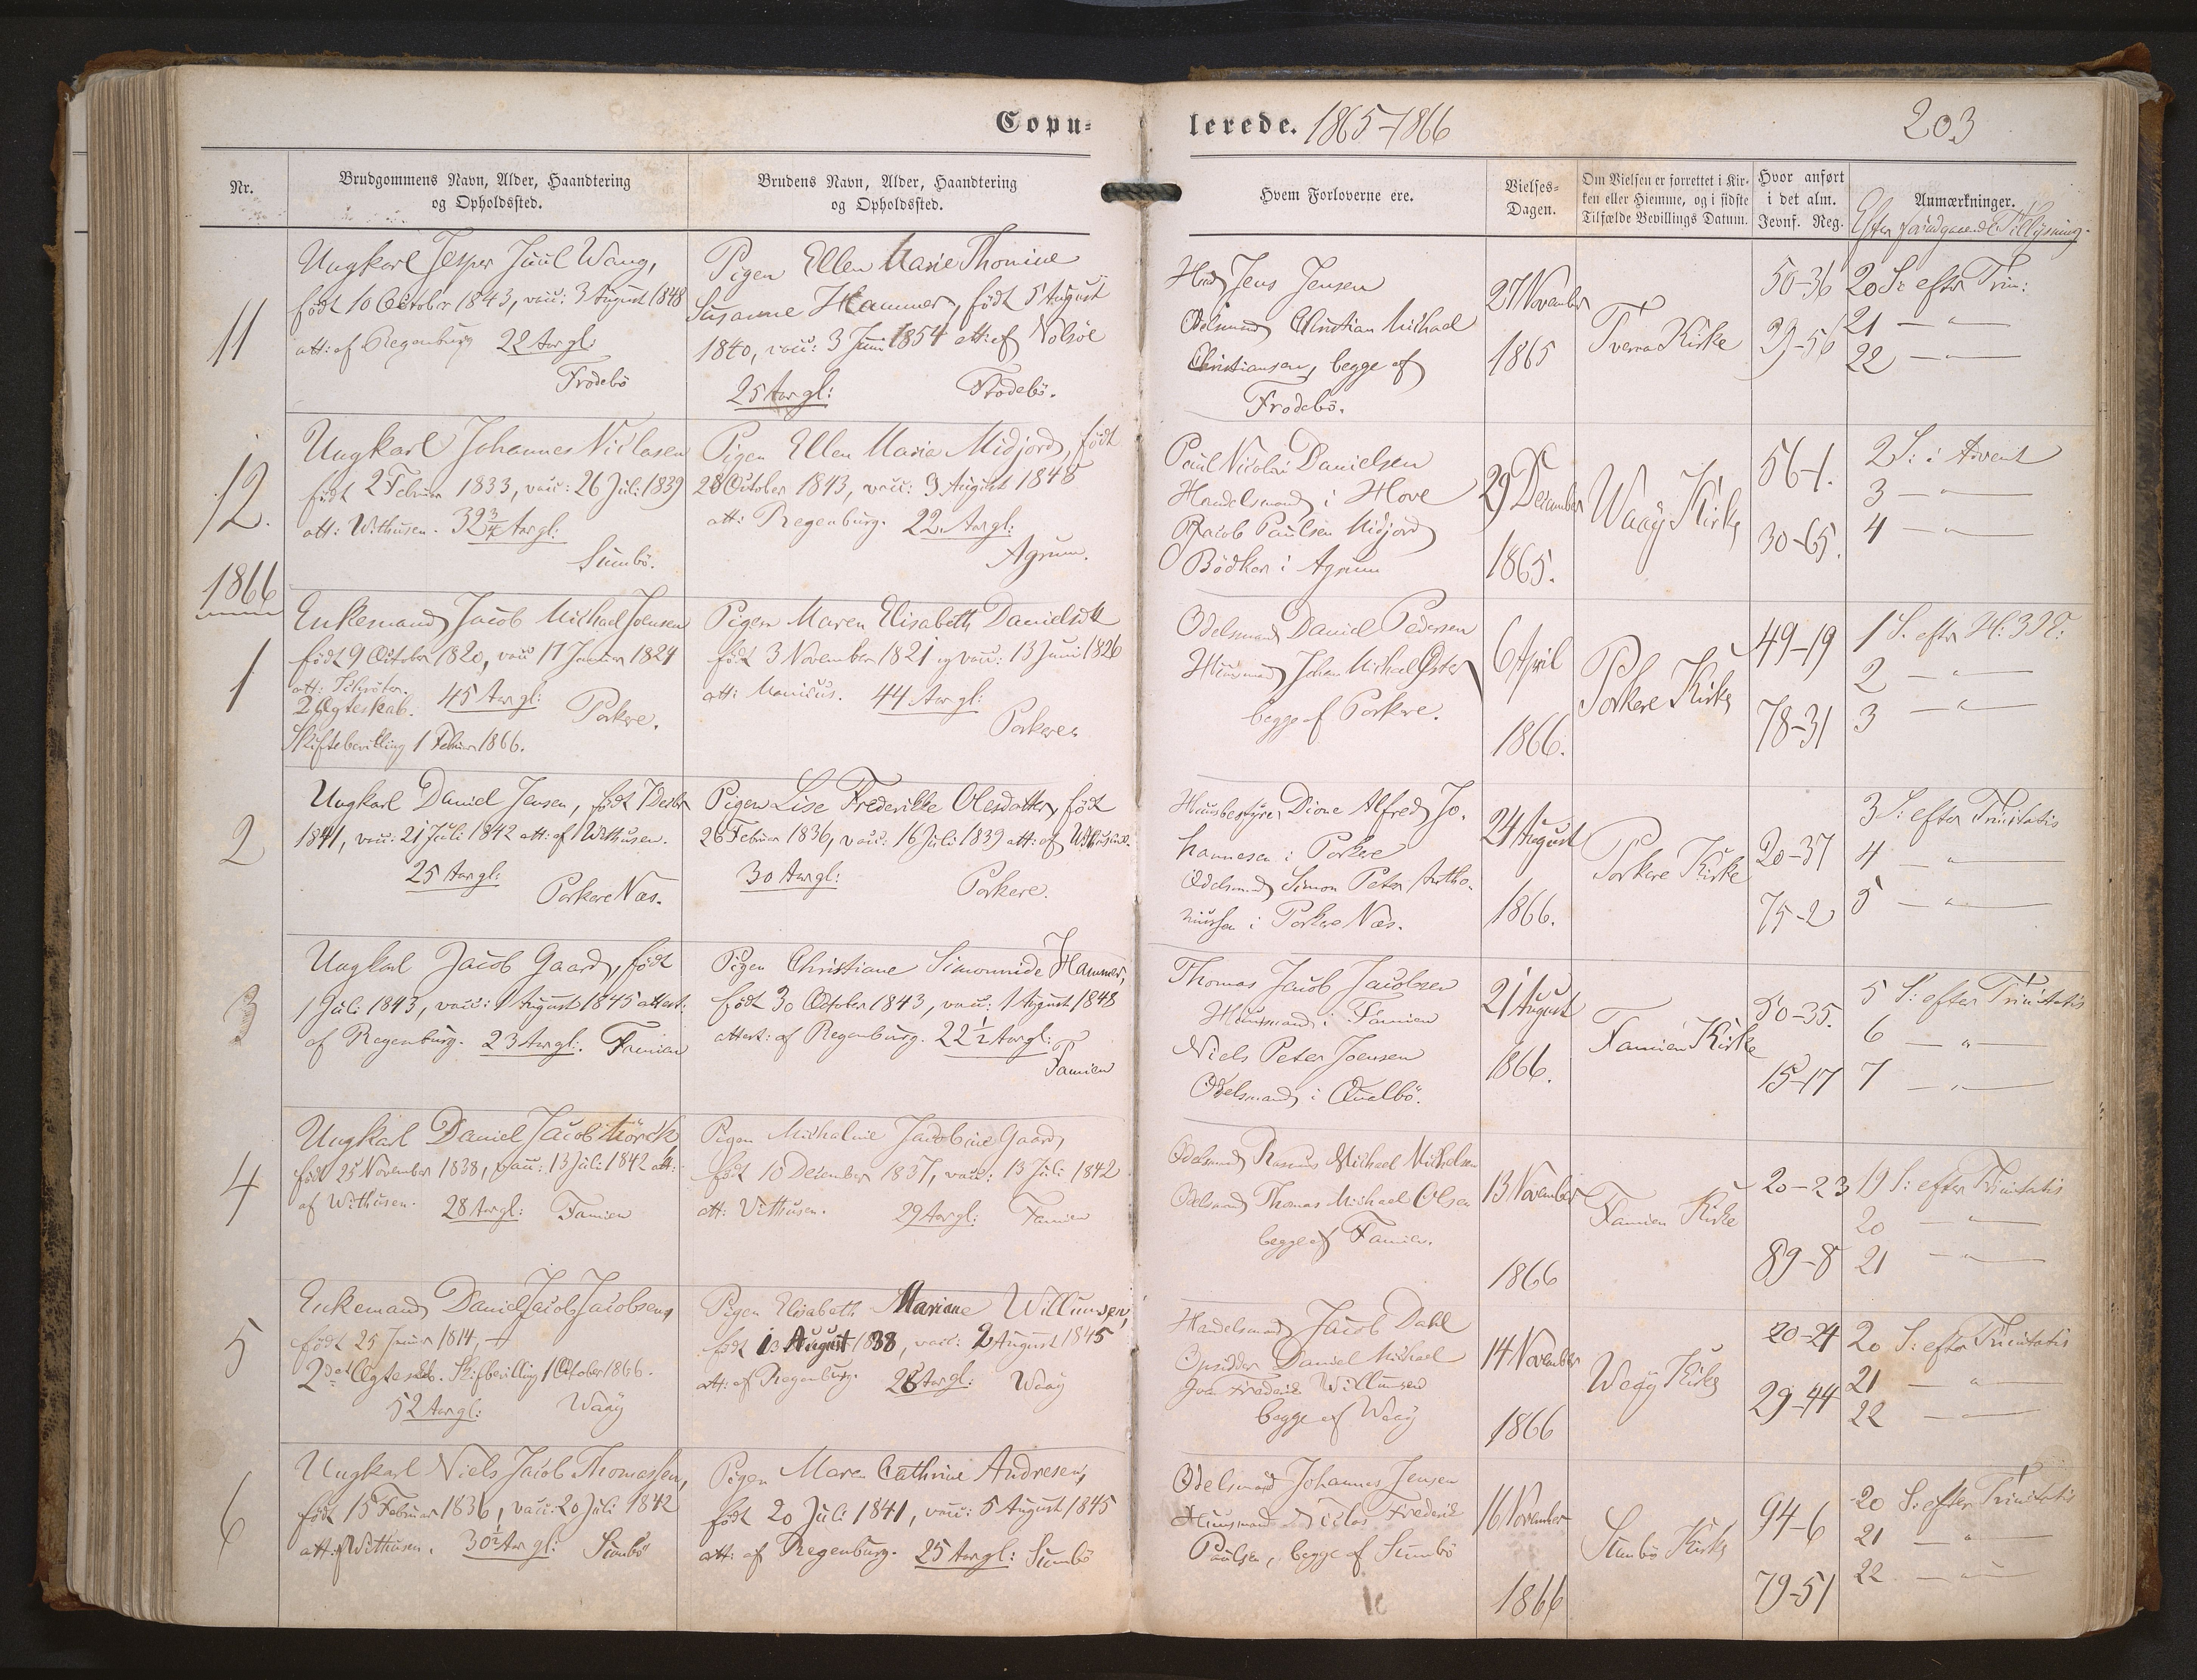 Copu=
lerede. 1865-1866
203
Nr.
Brudgommens Navn, Alder, Haandtering
og Opholdssted.
Brudens Navn, Alder, Haandtering
og Opholdssted.
Hvem Forloverne ere.
Vielses=
Dagen.
Om Vielsen er forrettet i Kir=
ken eller Hjemme, og i sidste
Tilfælde Bevillings Datum.
Hvor anført
i det alm.
Jevnf. Reg.
Anmærkninger.
Efter foregaaende Tillysning.
11
Ungkarl Jesper Juul Wang,
født 10 October 1843, vacc: 3 August 1848
att: af Regenburg 22 Aar gl:
Frodebö
Pigen Ellen Marie Thomine
Susanne Hammer, født 5 August
1840, vacc: 3 Juni 1854 att: af Nolsöe
25 Aar gl:
Frodebö.
Jens Jensen
Odelsmand Christian Michael
Christiansen, begge af
Frodebö.
27 November
1865
Tveraa Kirke
50-36
39-56
20 S: efter Trin:
21 — " —
22 — " —
12.
Ungkarl Johannes Niclasen
født 2 Februar 1833, vacc: 26 Juli 1839
att: Withusen. 32 3/4 Aar gl:
Sumbö.
Pigen Ellen Maria Midjord, født
28 October 1843, vacc: 3 August 1848
att: Regenburg. 22 Aar gl:
Agrum.
Paul Nicolai Danielsen
Handelsmand i Hove
Jacob Paulsen Midjord
Bödker i Agrum
29 December
1865.
Waag Kirke
56-1.
30-65.
2 S: i Advent
3 — " —
4 — " —
1866
1
Enkemand Jacob Michael Joensen
født 9 October 1820, vacc 17 Januar 1824
att: Schröter.
2 Ægteskab. 45 Aar gl: Porkere.
Skiftebevilling 1 Februar 1866.
Pigen Maren Elisabeth Danielsdtt
født 3 November 1821 og vacc: 13 Juni 1826
att: Manicus. 44 Aar gl:
Porkere.
Odelsmand Daniel Pedersen
Huusmand Johan Michael Öster
begge af Porkere.
6 April
1866.
Porkere Kirke
49-19
78-31
1 S. efter H: 3 K:
2 — " —
3 — " —
2
Ungkarl Daniel Jensen, født 7 Decbr
1841, vacc: 21 Juli 1842 att: af Withusen.
25 Aar gl:
Porkere Næs.
Pigen Lise Frederikke Olesdatter, født
26 Februar 1836, vacc: 16 Juli 1839 att: af Withusen.
30 Aar gl:
Porkere.
Huusbestyrer Dione Alfred Jo-
hannesen i Porkere
Odelsmand Simon Peter Antho-
niussen i Porkere Næs.
24 August
1866.
Porkere Kirke
20-37
75-2
3 S: efter Trinitatis
4 — " —
5 — " —
3
Ungkarl Jacob Gaard, født
1 Juli 1843, vacc: 1 August 1845 attest:
af Regenburg. 23 Aar gl: Famien
Pigen Christiane Simonnide Hammer,
født 30 October 1843, vacc: 1 August 1848
attest: af Regenburg. 22 1/2 Aar gl:
Famien
Thomas Jacob Jacobsen
Huusmand i Famien
Niels Peter Joensen
Odelsmand i Qualbö.
21 August
1866.
Famien Kirke
50-35.
15-17
5 S: efter Trinitatis
6 — " —
7 — " —
4
Ungkarl Daniel Jacob Mörch
født 25 November 1838, vacc: 13 Juli 1842 att:
af Withusen. 28 Aar gl: Famien
Pigen Michaline Jacobine Gaard,
født 10 December 1837, vacc: 13 Juli 1842
att: Withusen. 29 Aar gl: Famien
Odelsmand Rasmus Michael Michelsen
Odelsmand Thomas Michael Olsen
begge af Famien.
13 November
1866
Famien Kirke
20-23
89-8
19 S: efter Trinitatis
20 — " —
21 — " —
5
Enkemand Daniel Jacob Jacobsen,
født 25 Januar 1814,
2det Ægteskab. Skiftbevilling 1 October 1866.
52 Aar gl: Waag
Pigen Elisabeth Mariane Willumsen,
født 13 August 1838, vacc: 2 August 1845
att: af Regenburg. 28 Aar gl: Waag
Handelsmand Jacob Dahl
Opsidder Daniel Michael
Frederik Willumsen
begge af Waag
14 November
1866
Waag Kirke
20-24
29-44
20 S: efter Trinitatis
21 — " —
22 — " —
6
Ungkarl Niels Jacob Thomassen,
født 15 Februar 1836, vacc: 20 Juli 1842
att: af Withusen. 30 1/2 Aar gl: Sumbö
Pigen Maren Cathrine Andresen,
født 20 Juli 1841, vacc: 5 August 1845
att: af Regenburg. 25 Aar gl: Sumbö
Odelsmand Johannes Jensen
Huusmand Niclas Frederik
Poulsen, begge af Sumbö
16 November
1866
Sumbö Kirke
94-6
79-51
20 S: efter Trinitatis
21 — " —
22 — " —